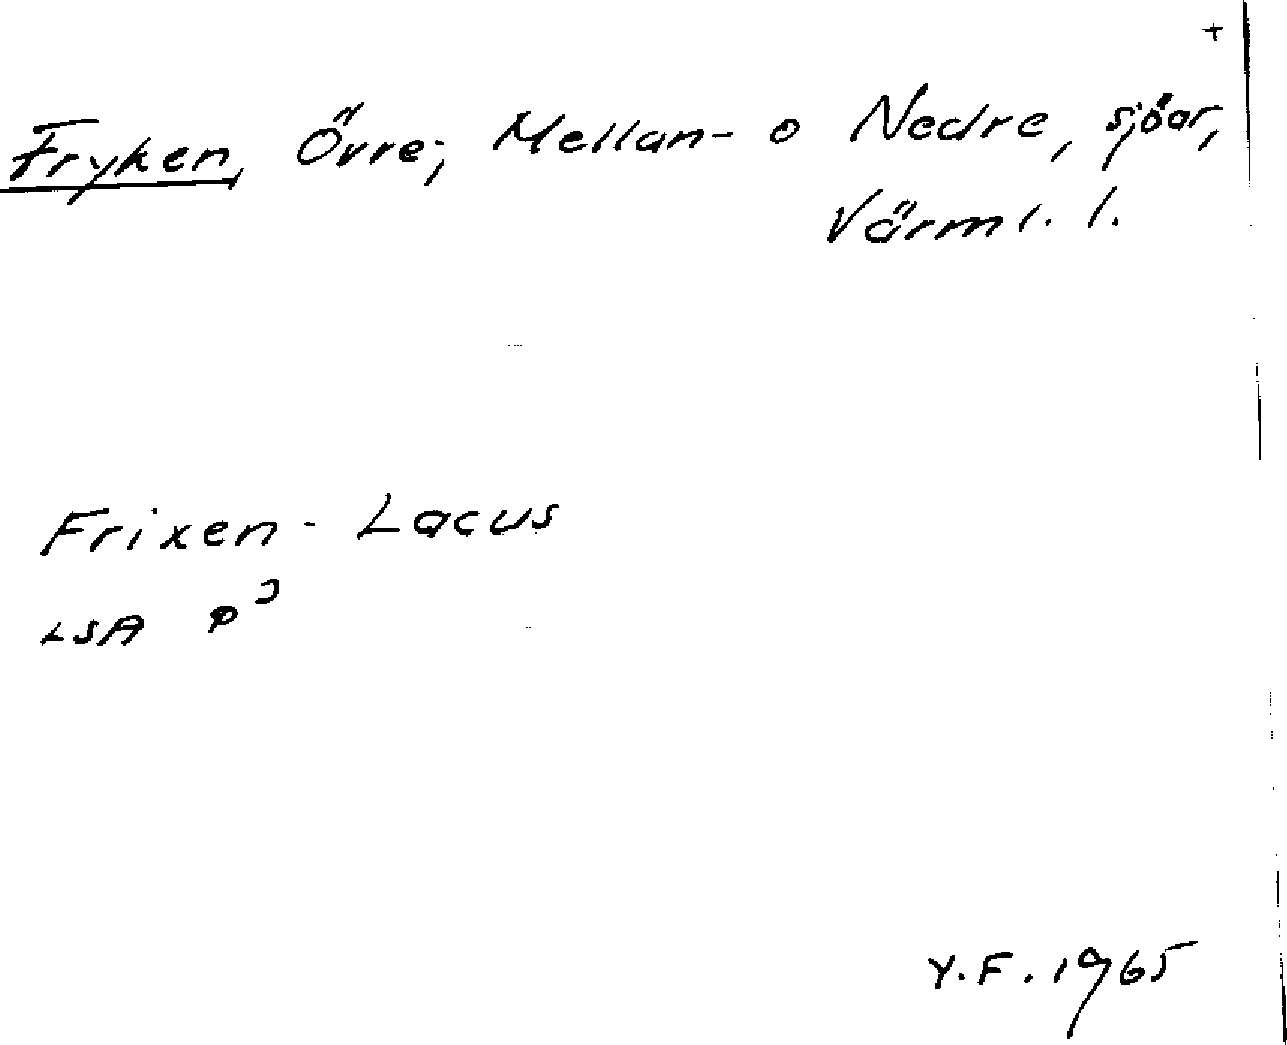 +
Fryken, Övre-, Mellan- o Nedre, sjöar,
Värml. l.
Frixen - Lacus
LSA
Y.F. 1965